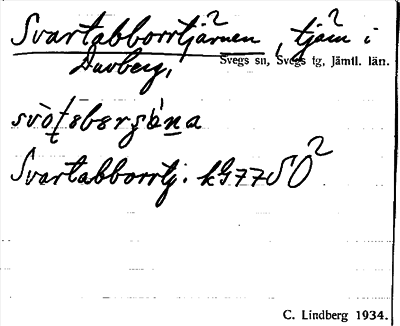 Svartabborrtjärnen, tjärn i
Duvberg, Svegs sn, Svegs tg, Jämtl. län.
Svartabborrtj. kG77SO²
C. Lindberg 1934.